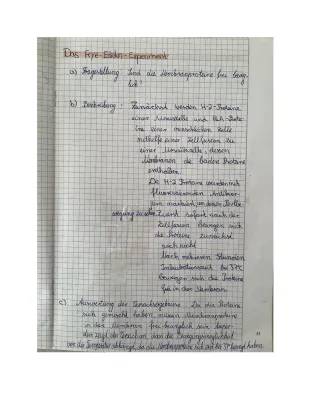 Das Frye-Edidin-Experiment
a) Fragestellung: Sind die Membranproteine frei beweg-
lich?
b) Beobachtung: Zunächst werden H-2-Proteine
einer Mauszelle und HLA-Prote
ine einer menschlichen Zelle
mithilfe einer Zellfusion zu
einer Mosaikzelle, dessen
Membranen die beiden Proteine
enthalten.
Die H-2 Proteine wurden mit
fluoreszierenden Antikör-
pern markiert, um deren
zu sehen. Zuerst sofort nach der
Zellfusion bewegen sich
die Proteine zunächst
noch nicht.
Nach mehreren Stunden
Inkubationszeit bei 37°C
bewegen sich die Proteine
frei in der Membran.
c) Auswertung der Versuchsergebnisse: Da die Proteine
sich gemischt haben, müssen Membranproteine
in der Membran frei beweglich sein.
die Bewegungsmöglichkeit
von der Temperatur abhängt, da die Membranproteine sich erst bei 37° bewegt haben.